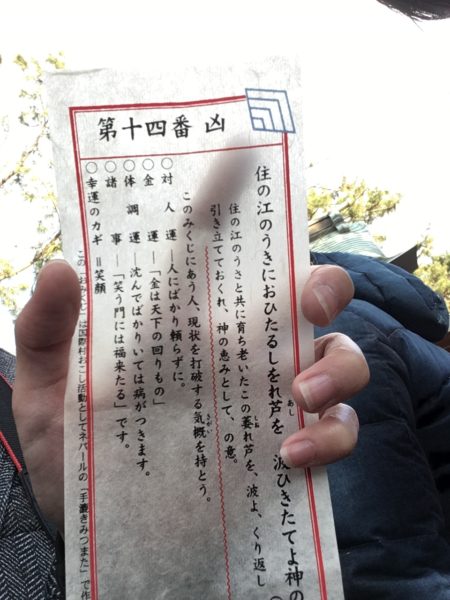 第十四番 凶
住の江のうきにおひたるしをれ芦を 波ひきたてよ神の
あし
住の江のうさと共に育ち老いたこの萎れ芦を、波よ、くり返し
しお
引き立てておくれ、神の恵みとして、の意。
このみくじにあう人、現状を打破する気概を持とう。
きがい
○対人運―人にばかり頼らずに。
○金運―「金は天下の回りもの」
○体調運―沈んでばかりいては病がつきます。
○諸事―「笑う門には福来たる」です。
○幸運のカギ=笑顔
この「おみくじ」は国際村おこし活動としてネパールの「手漉きみつまた」で作